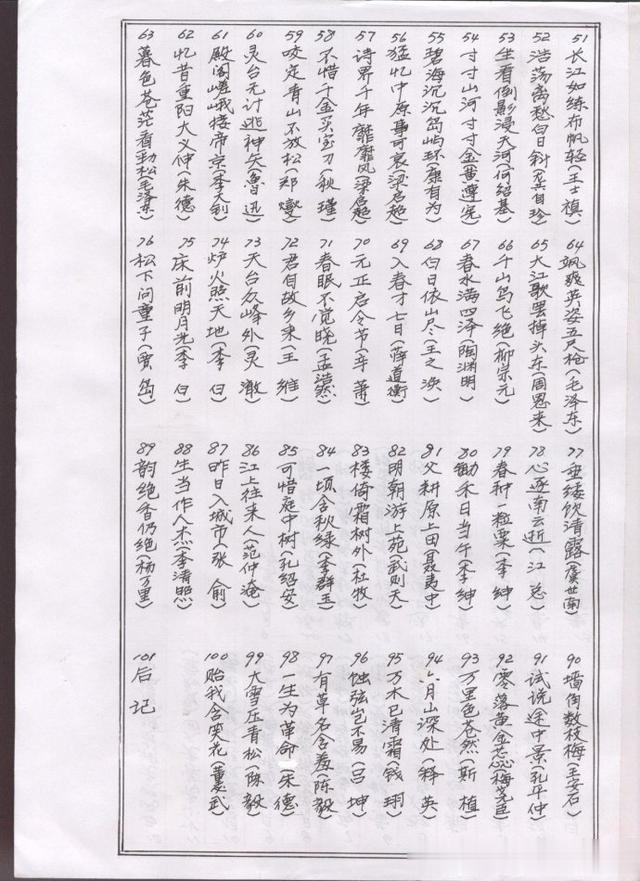 51 长江如练布帆轻(王士禛)
52 浩荡离愁白日斜(龚自珍)
53 坐看倒影浸天河(何绍基)
54 寸寸山河寸寸金(黄遵宪)
55 碧海沉沉岛屿环(康有为)
56 猛忆中原事可哀(梁启超)
57 诗界千年靡靡风(梁启超)
58 不惜千金买宝刀(秋瑾)
59 咬定青山不放松(郑燮)
60 灵台无计逃神矢(鲁迅)
61 殿阁嵯峨接帝京(李大钊)
62 忆昔重阳大义伸(朱德)
63 暮色苍茫看劲松(毛泽东)
64 飒爽英姿五尺枪(毛泽东)
65 大江歌罢掉头东周恩来
66 千山鸟飞绝柳宗元
67 春水满四泽(陶渊明)
68 白日依山尽(王之涣)
69 入春才七日(薛道衡)
70 元正启令节(辛萧)
71 春眠不觉晓(孟浩然)
72 君自故乡来(王维)
73 天台众峰外(灵澈)
74 炉火照天地(李白)
75 床前明月光(李白)
76 松下问童子(贾岛)
77 垂緌饮清露(虞世南)
78 心逐南云逝(江总)
79 春种一粒粟(李绅)
80 锄禾日当午(李绅)
81 父耕原上田(聂夷中)
82 明朝游上苑(武则天)
83 楼倚霜树外(杜牧)
84 一顷含秋绿(李群玉)
85 可惜庭中树(孔绍安)
86 江上往来人(范仲淹)
87 昨日入城市(张俞)
88 生当作人杰(李清照)
89 韵绝香仍绝(杨万里)
90 墙角数枝梅(王安石)
91 试说途中景(孔平仲)
92 零落黄金蕊(梅尧臣)
93 万里色苍然(斯植)
94 六月山深处(释英)
95 万木已清霜(钱珝)
96 蚀弦岂不易(吕坤)
97 有草名含羞(陈毅)
98 一生为革命(朱德)
99 大雪压青松(陈毅)
100 贻我含笑花(董必武)
101 后记